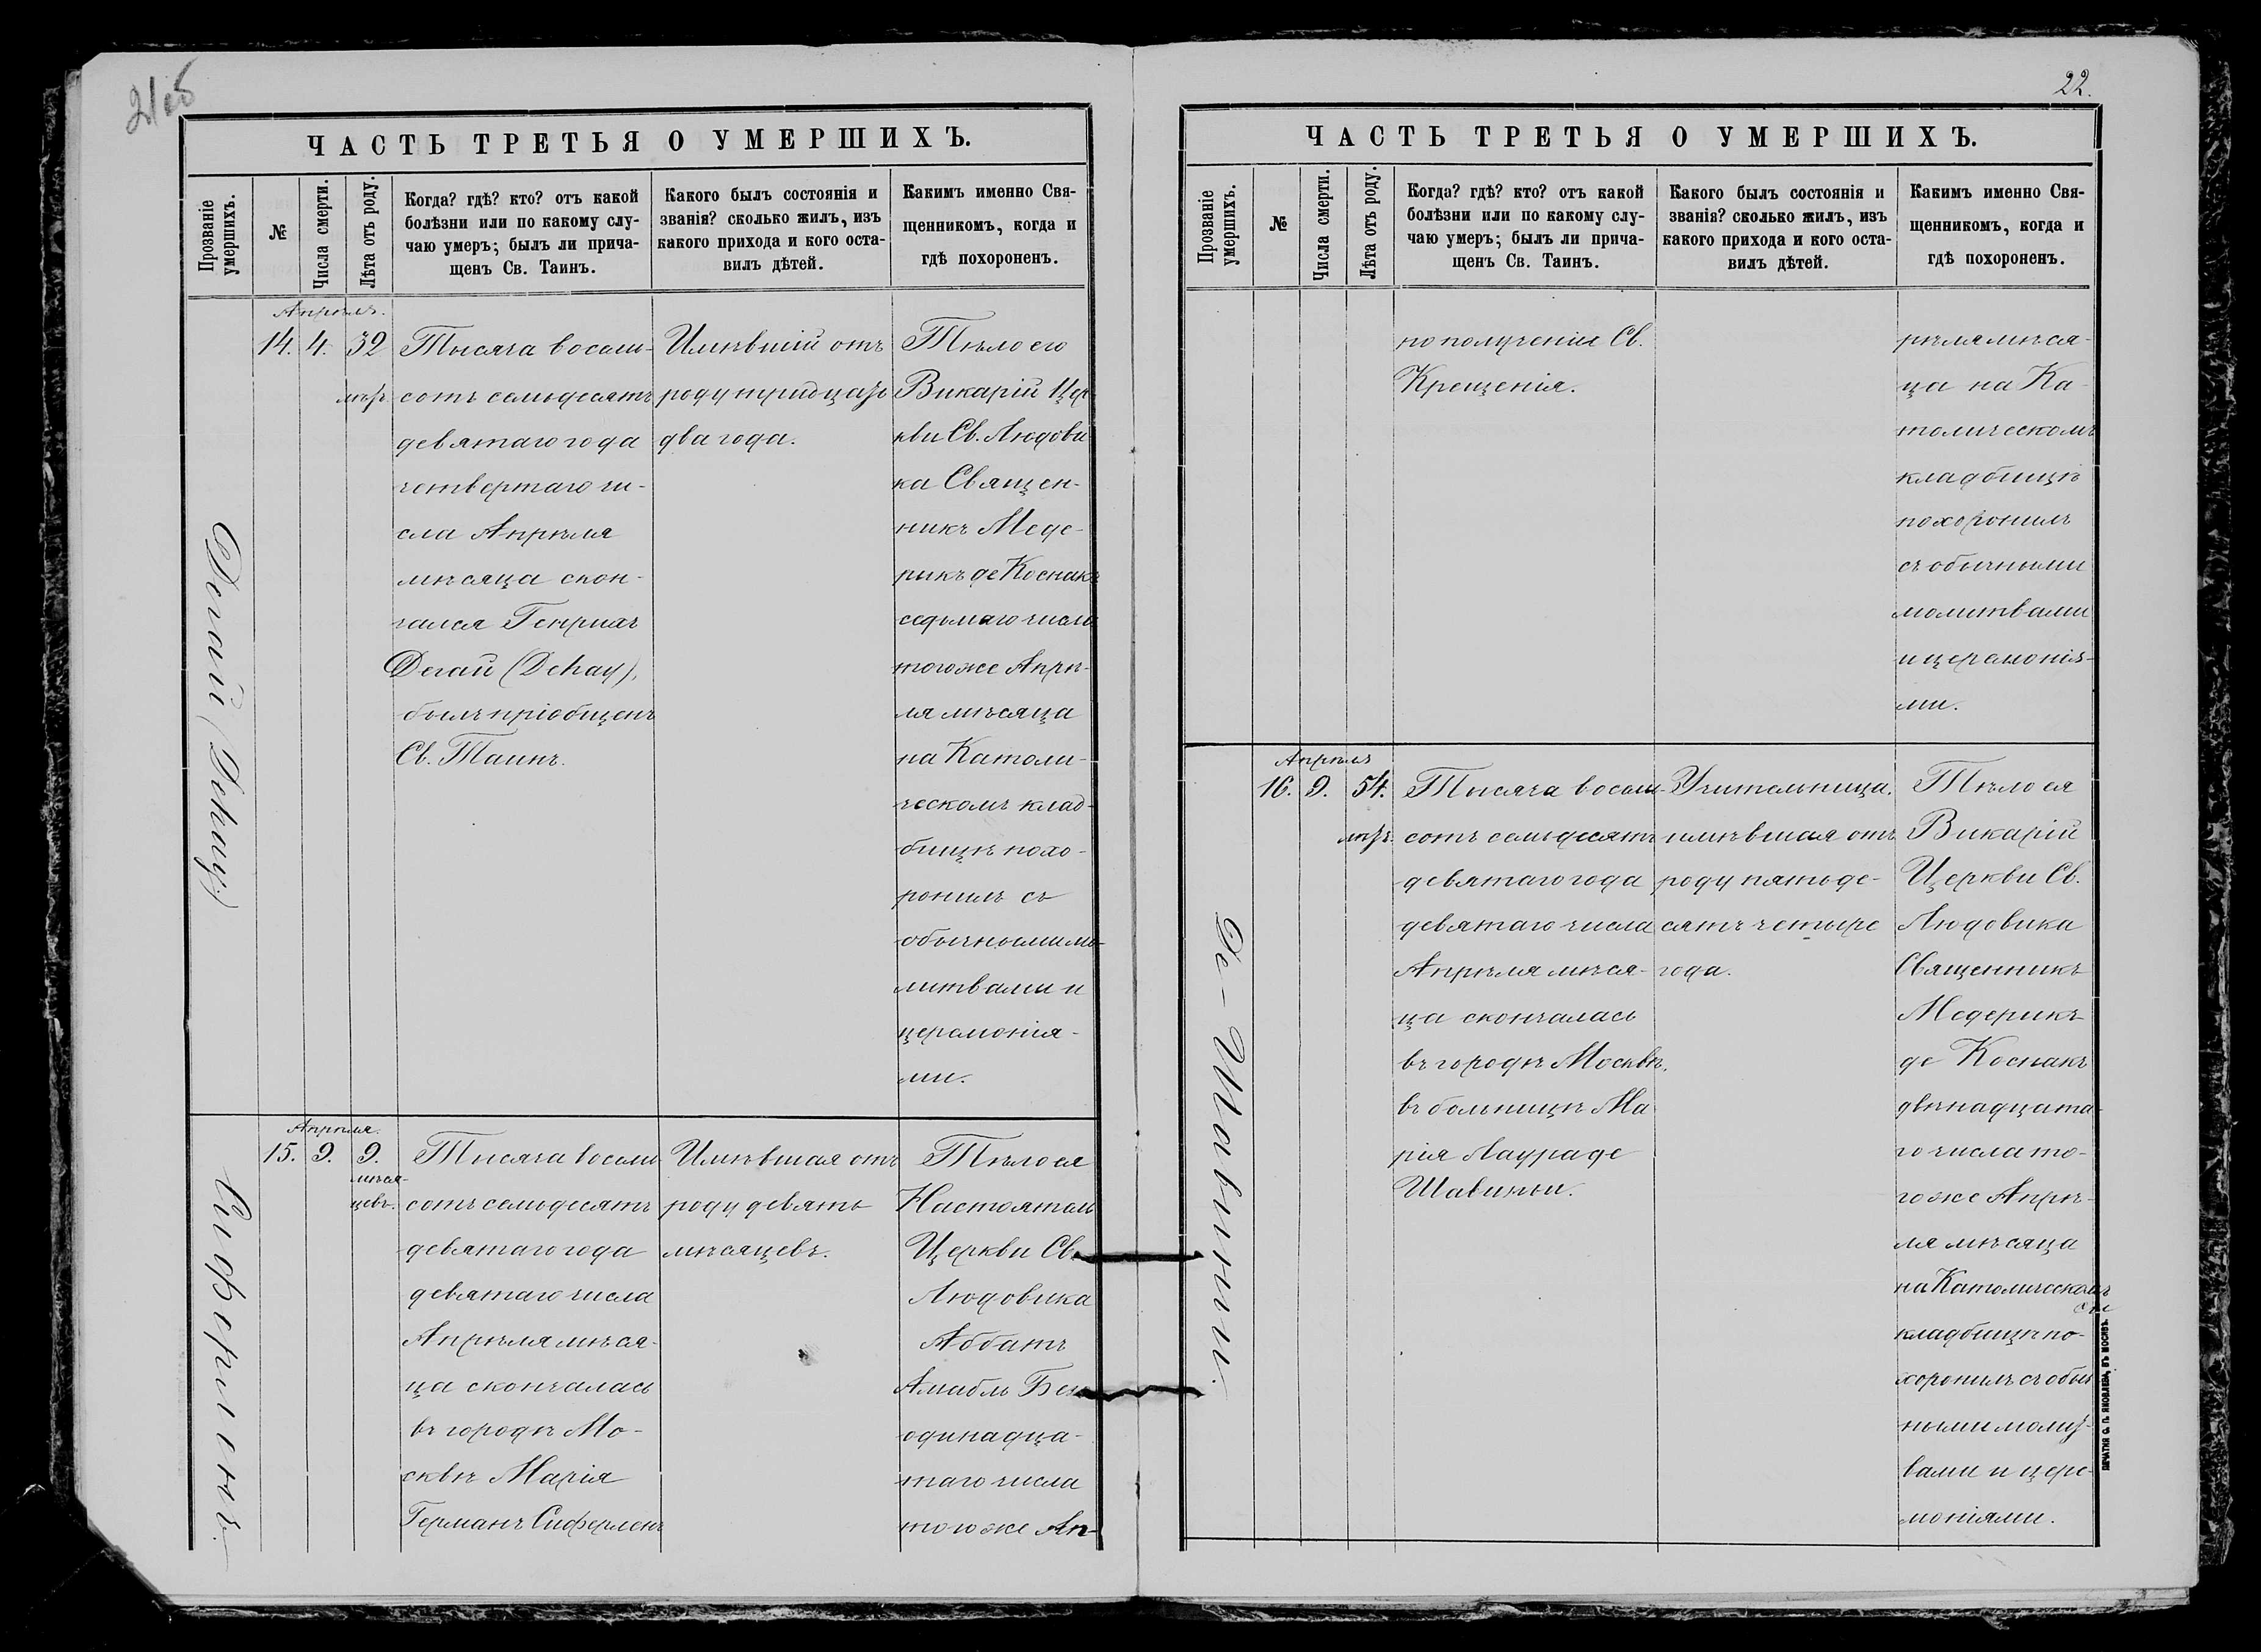 21об
ЧАСТЬ ТРЕТЬЯ О УМЕРШИХЪ.
Прозваніе умершихъ.
№
Числа смерти.
Лѣта отъ роду.
Когда? гдѣ? кто? отъ какой
болѣзни или по какому слу-
чаю умеръ; былъ ли прича-
щенъ Св. Таинъ.
Какого былъ состоянія и
званія? сколько жилъ, изъ
какого прихода и кого оста-
вилъ дѣтей.
Какимъ именно Свя-
щенникомъ, когда и
гдѣ похороненъ.
Дегай (Dehay)
Апрѣль.
14. 4. 32
Тысяча восемь-
сотъ семьдесятъ
девятаго года
четвертаго чи-
сла Апрѣля
мѣсяца скон-
чался Генрихъ
Дегай (Dehay),
былъ пріобщенъ
Св. Таинъ.
Имѣвшій отъ
роду тридцать
два года.
Тѣло его
Викарій Цер
кви Св. Людови
ка Священ-
никъ Меде-
рикъ де Коснакъ
седьмаго числа
тогоже Апрѣ-
ля мѣсяца
на Католи-
ческомъ клад-
бищѣ похо-
ронилъ съ
обычными мо-
литвами и
церемонія-
ми.
Сиферленъ.
Апрѣля.
15. 9. 9.
мѣся-
цевъ.
Тысяча восемь
сотъ семьдесятъ
девятаго года
девятаго числа
Апрѣля мѣся-
ца скончалась
въ городѣ Мо-
сквѣ Марія
Германъ Сиферленъ
Имѣвшая отъ
роду девять
мѣсяцевъ.
Тѣло ея
Настоятель
Церкви Св.
Людовика
Аббатъ
Амабль
одинадца-
таго числа
тогоже Ап-
22.
ЧАСТЬ ТРЕТЬЯ О УМЕРШИХЪ.
Прозваніе умершихъ.
№
Числа смерти.
Лѣта отъ роду.
Когда? гдѣ? кто? отъ какой
болѣзни или по какому слу-
чаю умеръ; былъ ли прича-
щенъ Св. Таинъ.
Какого былъ состоянія и
званія? сколько жилъ, изъ
какого прихода и кого оста-
вилъ дѣтей.
Какимъ именно Свя-
щенникомъ, когда и
гдѣ похороненъ.
по полученіи Св.
Крещенія.
рѣля мѣся-
ца на Ка-
толическомъ
кладбищѣ
похоронилъ
съ обычными
молитвами
и церемонія-
ми.
Де-Шавиньи.
Апрѣль
16. 9. 54.
Тысяча восемь-
сотъ семьдесятъ
девятаго года
девятаго числа
Апрѣля мѣся-
ца скончалась
въ городѣ Москвѣ,
въ больницѣ Ма
рія Лаура де
Шавиньи.
Учительница,
имѣвшая отъ
роду пятьде-
сятъ четыре
года.
Тѣло ея
Викарій
Церкви Св.
Людовика
Священникъ
Медерикъ
де Коснакъ
двѣнадцата-
го числа то-
гоже Апрѣ-
ля мѣсяца
на Католическомъ
кладбищѣ по-
хоронилъ съ обыч
ными молит-
вами и цере-
моніями.
ПЕЧАТНЯ С. П. ЯКОВЛЕВА, ВЪ МОСКВѢ.